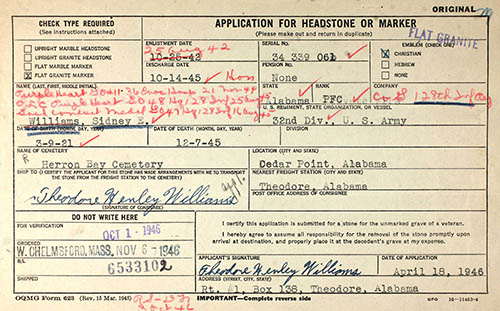 ORIGINAL
CHECK TYPE REQUIRED
(See instructions attached)
UPRIGHT MARBLE HEADSTONE
UPRIGHT GRANITE HEADSTONE
FLAT MARBLE MARKER
FLAT GRANITE MARKER
APPLICATION FOR HEADSTONE OR MARKER
(Please make out and return in duplicate)
ENLISTMENT DATE
25 Aug 42
10-25-42
DISCHARGE DATE
10-14-45 Hon
SERIAL No.
34 339 061
PENSION No.
None
EMBLEM (CHECK ONE)
FLAT GRANITE
CHRISTIAN
HEBREW
NONE
NAME (LAST, FIRST, MIDDLE INITIAL)
Williams, Sidney E.
STATE
Alabama
RANK
PFC
COMPANY
Co G 128th Inf
U. S. REGIMENT, STATE ORGANIZATION, OR VESSEL
32nd Div., U. S. Army
DATE OF BIRTH (MONTH, DAY, YEAR)
3-9-21
DATE OF DEATH (MONTH, DAY, YEAR)
12-7-45
NAME OF CEMETERY
Herron Bay Cemetery
LOCATION (CITY AND STATE)
Cedar Point, Alabama
SHIP TO (I CERTIFY THE APPLICANT FOR THIS STONE HAS MADE ARRANGEMENTS WITH ME TO TRANSPORT THE STONE FROM THE FREIGHT STATION TO THE CEMETERY)
NEAREST FREIGHT STATION (CITY AND STATE)
Theodore, Alabama
Theodore Henley Williams
(SIGNATURE OF CONSIGNEE)
POST OFFICE ADDRESS OF CONSIGNEE
DO NOT WRITE HERE
FOR VERIFICATION
OCT 1 - 1946
ORDERED
W. CHELMSFORD, MASS. NOV 6 - 1946
6533102
SHIPPED
I certify this application is submitted for a stone for the unmarked grave of a veteran.
I hereby agree to assume all responsibility for the removal of the stone promptly upon
arrival at destination, and properly place it at the decedent's grave at my expense.
APPLICANT'S SIGNATURE
Theodore Henley Williams
DATE OF APPLICATION
April 18, 1946
ADDRESS (STREET, CITY, STATE)
Rt. #1, Box 138, Theodore, Alabama
OQMG Form 623 (Rev. 13 Mar. 1945)
IMPORTANT—Complete reverse side
GPO 16-11453-4